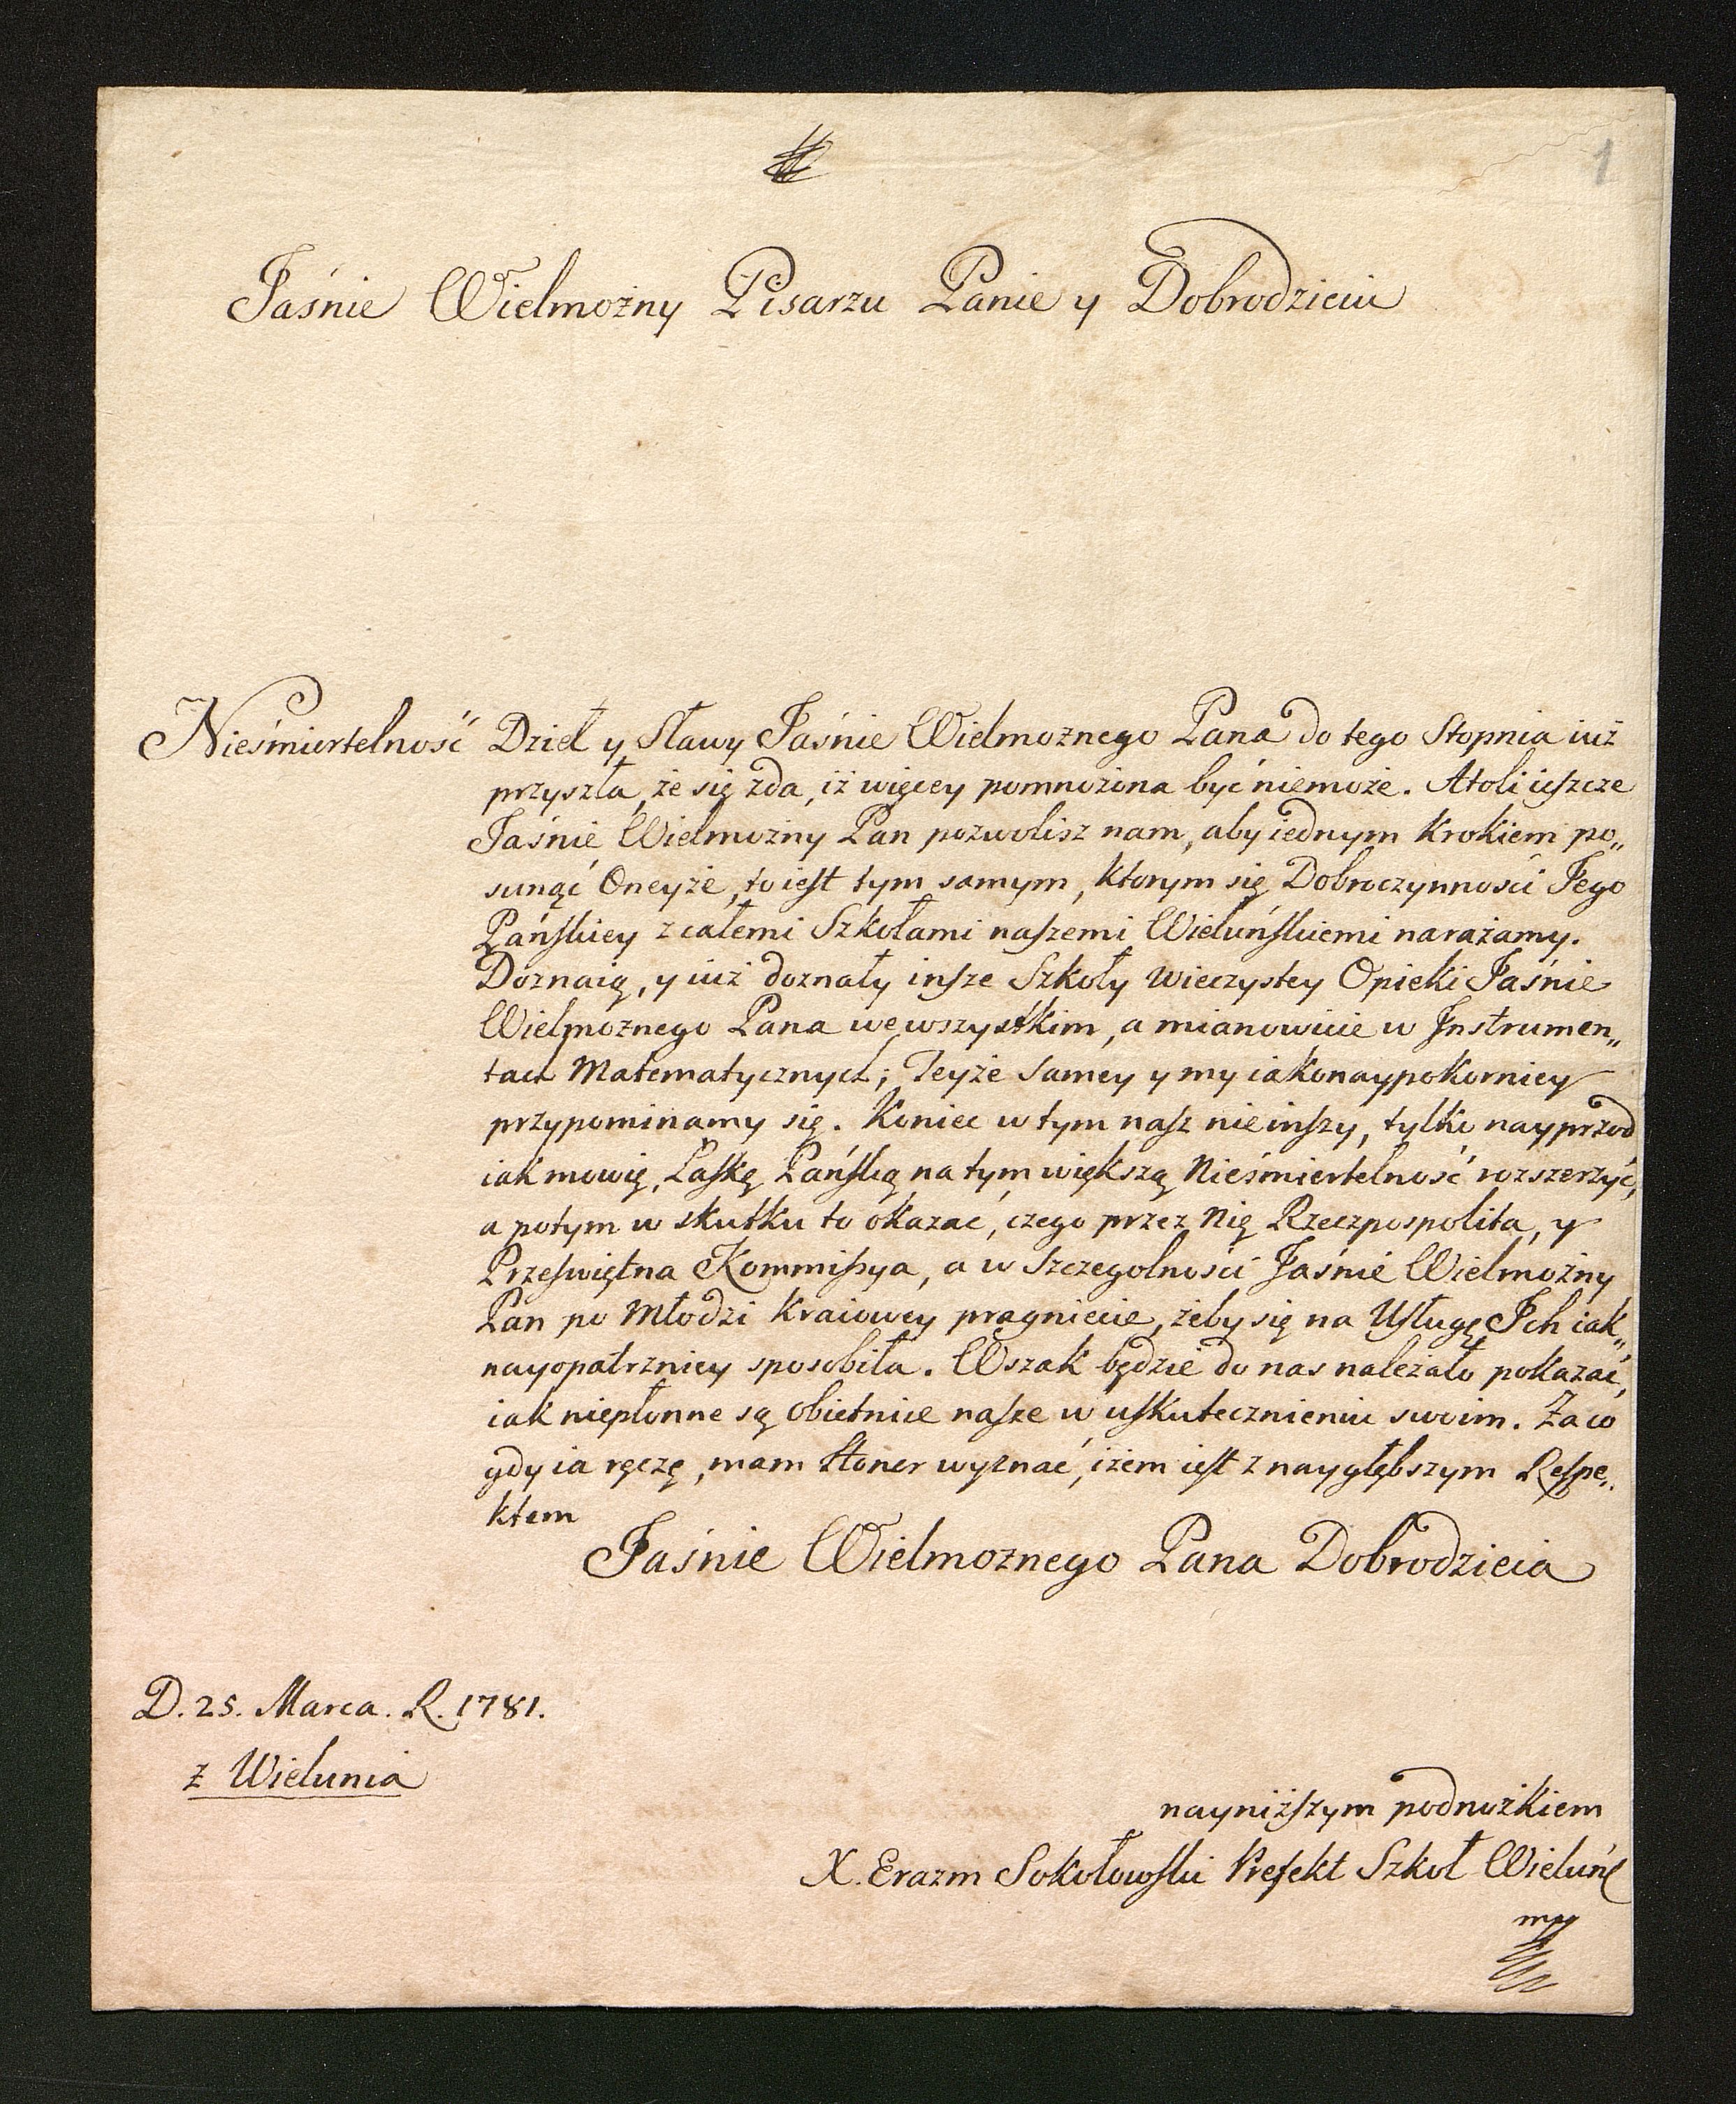 1
Jaśnie Wielmożny Pisarzu Panie y Dobrodzieiu
Nieśmiertelność Dzieł y Sławy Jaśnie Wielmożnego Pana do tego Stopnia iuż
przyszła, że się zda, iż więcey pomnożona być niemoże. Atoli ieszcze
Jaśnie Wielmożny Pan pozwolisz nam, aby iednym Krokiem po„
sunąć Oneyże, to iest tym samym, ktorym się Dobroczynności Jego
Pańskiey z całemi Szkołami naszemi Wieluńskiemi narażamy.
Doznaią, y iuż doznały insze Szkoły wieczystey Opieki Jaśnie
Wielmożnego Pana we wszystkim, a mianowicie w Instrumen„
tach Matematycznych; Teyże samey y my iako naypokorniey
przypominamy się. Koniec w tym nasz nie inszy, tylko nayprzod
iak mowię, Łaskę Pańską na tym większą Nieśmiertelność rozszerzyć,
a potym w skutku to okazac, czego przez Nię Rzeczpospolita, y
Przeświętna Kommissya, a w szczegolności Jaśnie Wielmożny
Pan po Młodzi Kraiowey pragniecie, żeby się na Usługę Ich iak„
nayopatrzniey sposobiła. Wszak będzie do nas należało pokazać,
iak niepłonne są Obietnice nasze w uskutecznieniu swoim. Za co
gdy ia ręczę, mam Honor wyznać, iżem iest z naygłębszym Respe„
ktem
Jaśnie Wielmożnego Pana Dobrodzieia
D. 25. Marca. R. 1781.
z Wielunia
nayniższym podnożkiem
X. Erazm Sokołowski Prefekt Szkoł Wieluńs
mp